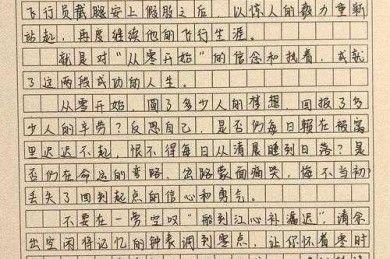 飞行员截腿安上假肢之后 以惊人的毅力重新
站起，再度继续他的飞行生涯。
就是对“从零开始”的信念和执着，成就
了这两段成功的人生。
从零开始，圆了多少人的梦想，回报了多
少人的辛劳？反思自己，是否们每日躺在被窝
里迟迟不起，恨不得每日从清晨睡到日落？是
否们在命运的重路、出路蒙面痛哭，悔不当初？
丢失了回到起点的信心和勇气。
不要在一旁空叹“船到江心补漏迟”，清茶
出空闲将记忆的钟表调到零点，让你怀着零时